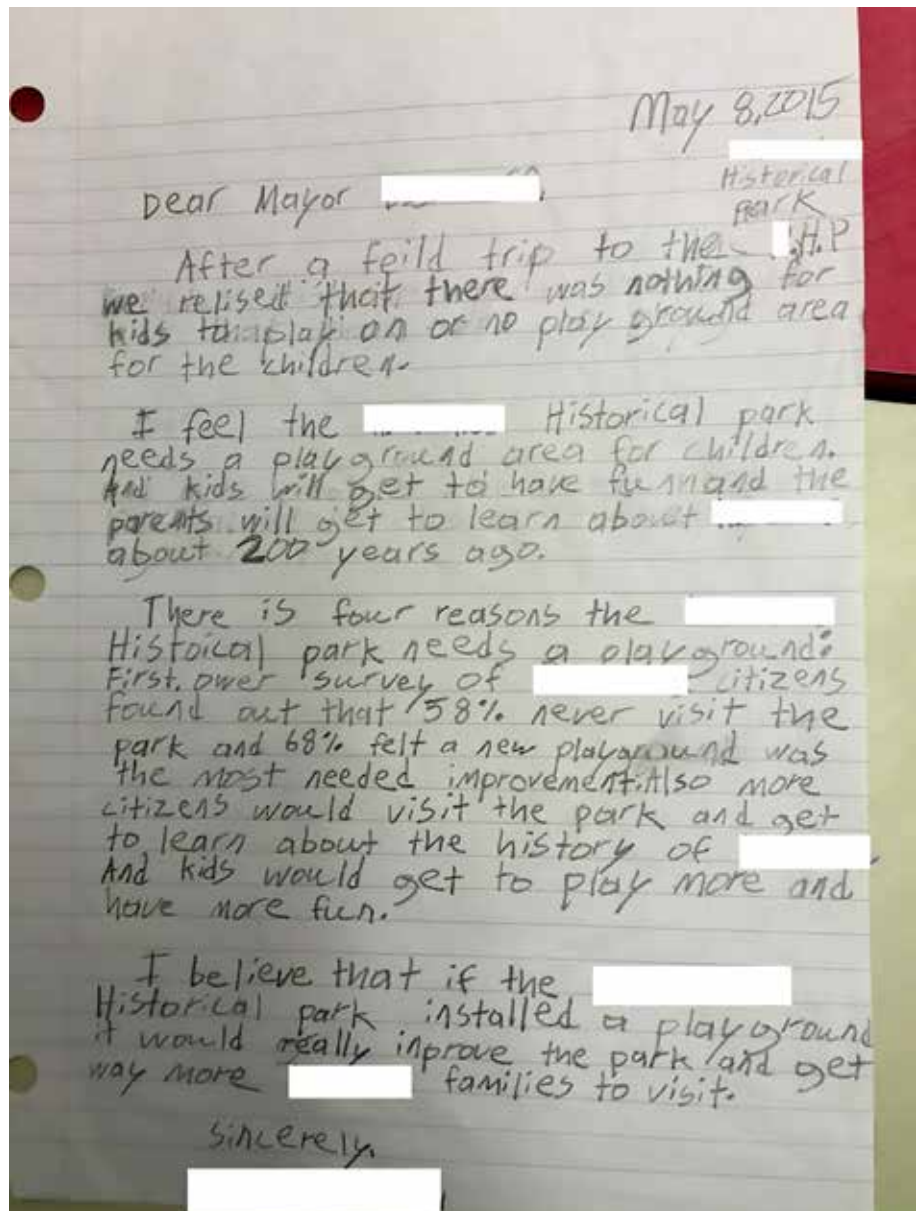 May 8,2015
Historical
park
Dear Mayor
After a feild trip to the .H.P
we relised that there was nothing for
kids to play on or no play ground area
for the children.
I feel the Historical park
needs a playground area for children.
And kids will get to have funn and the
parents will get to learn about
about 200 years ago.
There is four reasons the
Histoical park needs a playground:
First, ower survey of citizens
found out that 58% never visit the
park and 68% felt a new playground was
the most needed improvement. Also more
citizens would visit the park and get
to learn about the history of .
And kids would get to play more and
have more fun.
I believe that if the
Historical park installed a playground
it would really inprove the park and get
way more families to visit.
sincerely,